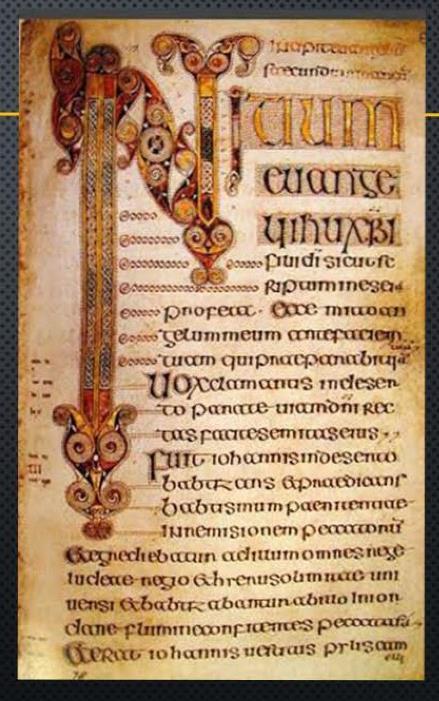 secundum
INITIUM
euange
lii ihu xpi
fili di sicut sc
riptum in esei
profeta · Ecce mitto an
gelum meum ante faciem
tuam qui praeparabit uia
Uox clamantis in deser
to parate uiam dni rec
tas facite semitas eius
Fuit iohannis in deserto
babtizans & praedicans
babtismum paenitentiae
in remisionem peccatorū
& egrediebatur ad illum omnes
Iudeae regio & hierusolimitae uni
uersi & babtizabantur ab illo in ior
dane flumine confitentes peccata sua
& erat iohannis uestitus pylis cam
eli